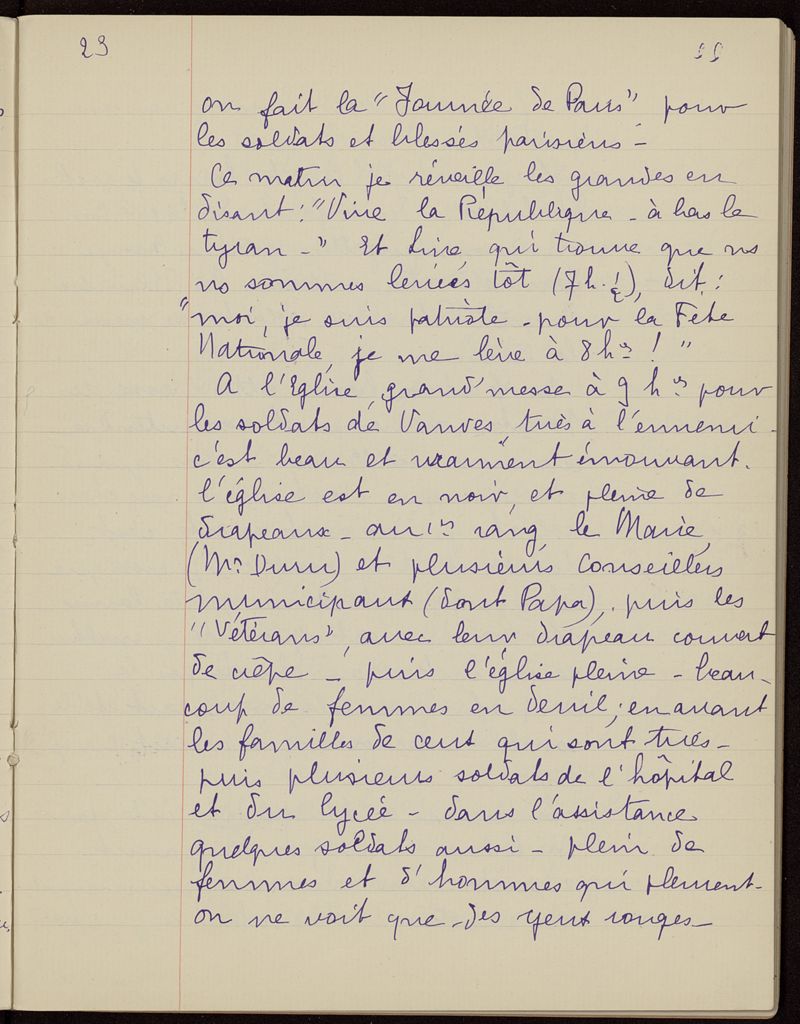 23
on fait la "Journée de Paris" pour
les soldats et blessés parisiens -
Ce matin je réveille les grandes en
disant : "Vive la République - à bas le
tyran -" Et Line, qui trouve que ns
ns sommes levées tôt (7 h. ½), dit :
"moi, je suis patriote - pour la Fête
Nationale, je me lève à 8 hres ! "
A l'Eglise, grand'messe à 9 hres pour
les soldats de Vanves, tués à l'ennemi -
c'est beau et vraiment émouvant.
l'église est en noir, et pleine de
drapeaux - au 1er rang, le Maire,
(Mr Duru) et plusieurs Conseillers
municipaux (dont Papa), puis les
"Vétérans", avec leur drapeau couvert
de crêpe - puis l'église pleine - beau-
coup de femmes en deuil ; en avant
les familles de ceux qui sont tués -
puis plusieurs soldats de l'hôpital
et du lycée - dans l'assistance
quelques soldats aussi - plein de
femmes et d'hommes qui pleurent -
on ne voit que des yeux rouges -